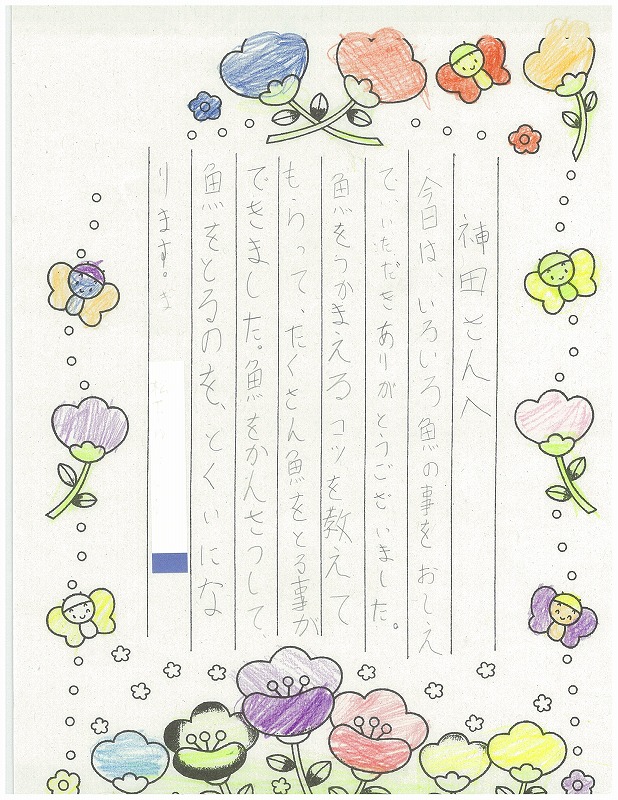 神田さんへ
今日は、いろいろ魚の事をおしえ
ていただきありがとうございました。
魚をつかまえるコツを教えて
もらって、たくさん魚をとる事が
できました。魚をかんさつして、
魚をとるのを、とくいにな
ります。